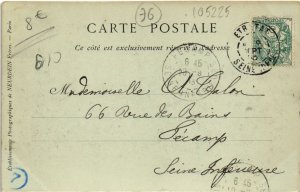 8€
76
105225
CARTE POSTALE
Ce côté est exclusivement réservé à l'adresse
ETRETAT
SEINE
Mademoiselle Talon
66 Rue des Bains
Fécamp
Seine Inférieure
6 45
6 45
Établissements Photographiques de NEURDEIN Frères. — Paris